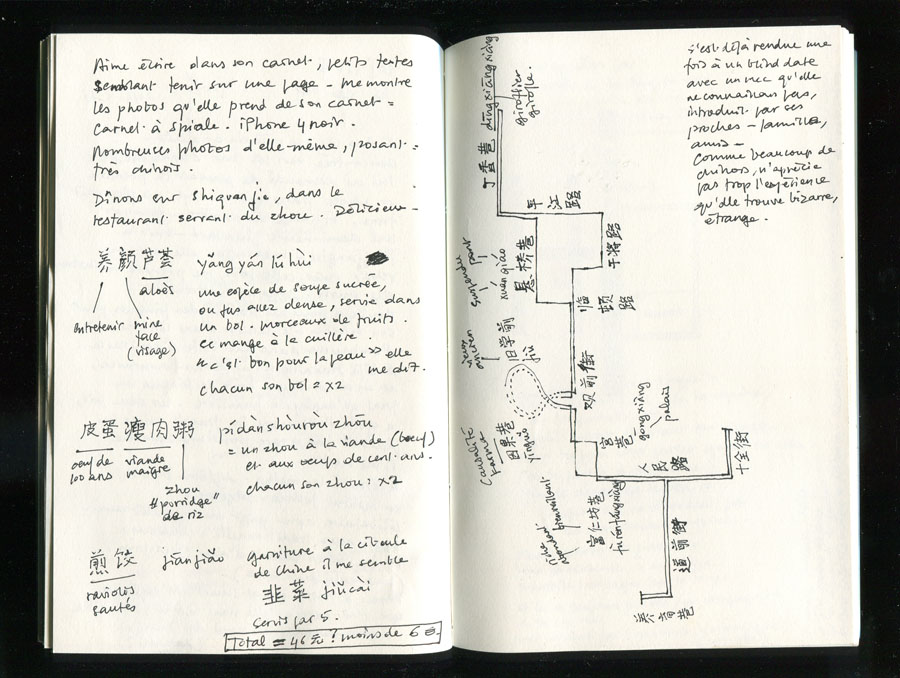 Aime écrire dans son carnet, petits textes
semblant tenir sur une page - me montre
les photos qu'elle prend de son carnet =
carnet à spirale. iPhone 4 noir.
Nombreuses photos d'elle-même, posant =
très chinois.
Dînons sur Shiquanjie, dans le
restaurant servant du zhou. Délicieux -
养颜芦荟 yǎng yán lú huì
aloès
entretenir mine
face
(visage)
une espèce de soupe sucrée,
ou jus assez dense, servie dans
un bol. morceaux de fruits.
se mange à la cuillère.
"c'est bon pour la peau" elle
me dit.
chacun son bol = x2
皮蛋瘦肉粥 pídànshòuròu zhōu
oeuf de
100 ans
viande
maigre
zhou
"porridge"
de riz
= un zhou à la viande (boeuf)
et aux oeufs de cent ans.
chacun son zhou: x2
煎饺 jiān jiǎo
raviolis
sautés
garniture à la ciboule
de chine il me semble
韭菜 jiǔcài
servis par 5.
Total = 46元! moins de 6 €.
丁香巷 dīngxiāngxiàng
giroflier
girofle.
平江路
悬桥巷
xuanqiáo
suspendre pont
干将路
临顿路
旧学前
jiù
vieux
ancien
观前街
因果巷
yīnguǒ
causalité
karma
宫巷
gongxiàng
palais
人民路
十全街
富仁坊巷
fùrénfángxiàng
道前街
s'est déjà rendue une
fois à un blind date
avec un mec qu'elle
ne connaissait pas,
introduit par ses
proches - famille,
amis -
comme beaucoup de
chinois, n'apprécie
pas trop l'expérience
qu'elle trouve bizarre,
étrange.